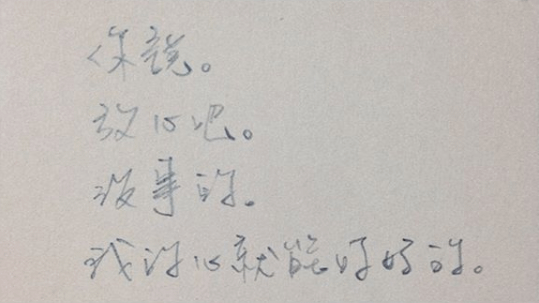 你說。
放心吧。
沒事的。
我許心就能好好的。